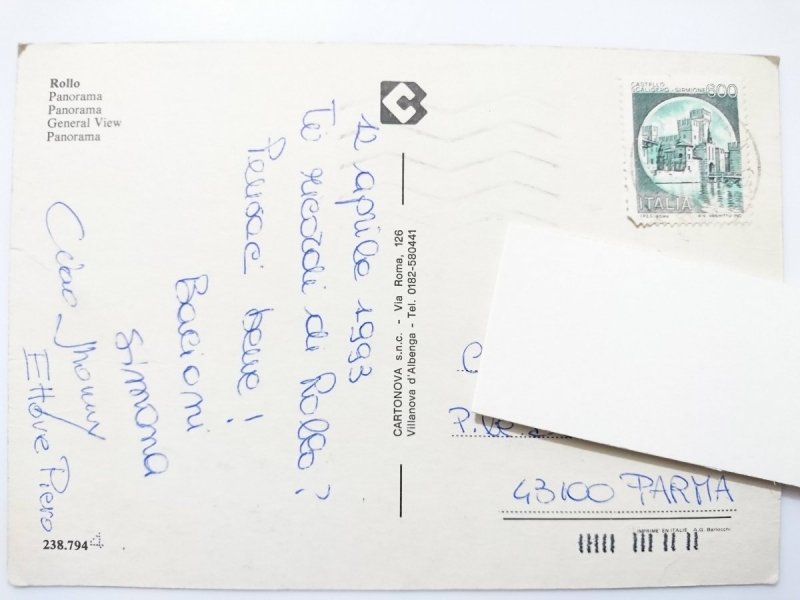 Rollo
Panorama
Panorama
General View
Panorama
12 aprile 1993
Te ricordi di Rollo?
Pensaci bene!
Bacioni
Simona
Ciao Jhonny
Ettore Piero
238.794
CARTONOVA s.n.c. - Via Roma, 126
Villanova d'Albenga - Tel. 0182-580441
CASTELLO
SCALIGERO - SIRMIONE
600
ITALIA
I.P.Z.S. ROMA
P.le
43100 PARMA
IMPRIME EN ITALIE A.G. Barlocchi